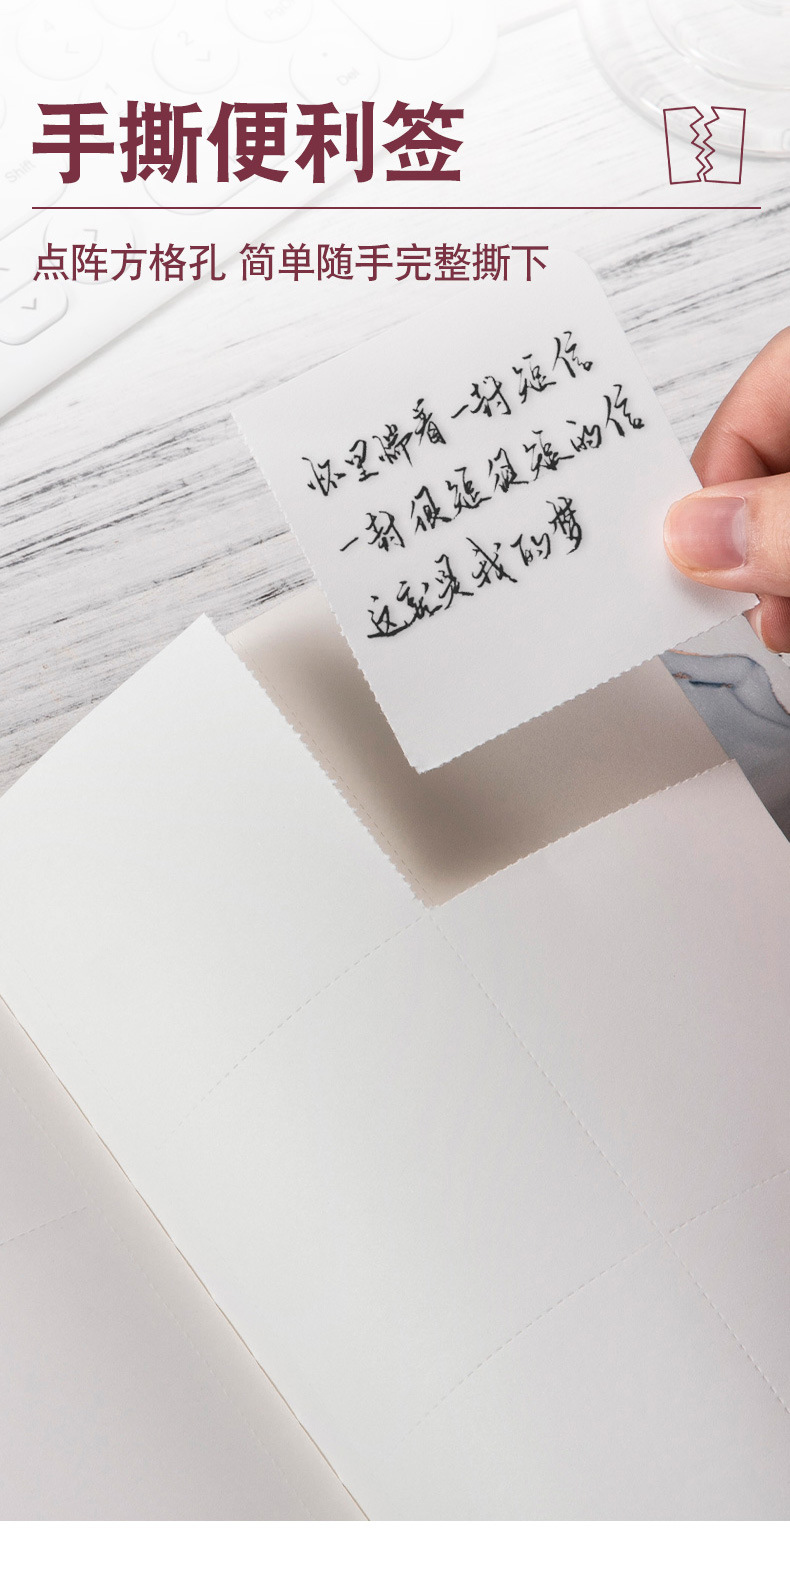 手撕便利签
点阵方格孔 简单随手完整撕下
怀里揣着一封短信
一封很短很短的信
这就是我的梦
Shift
2
1
Del